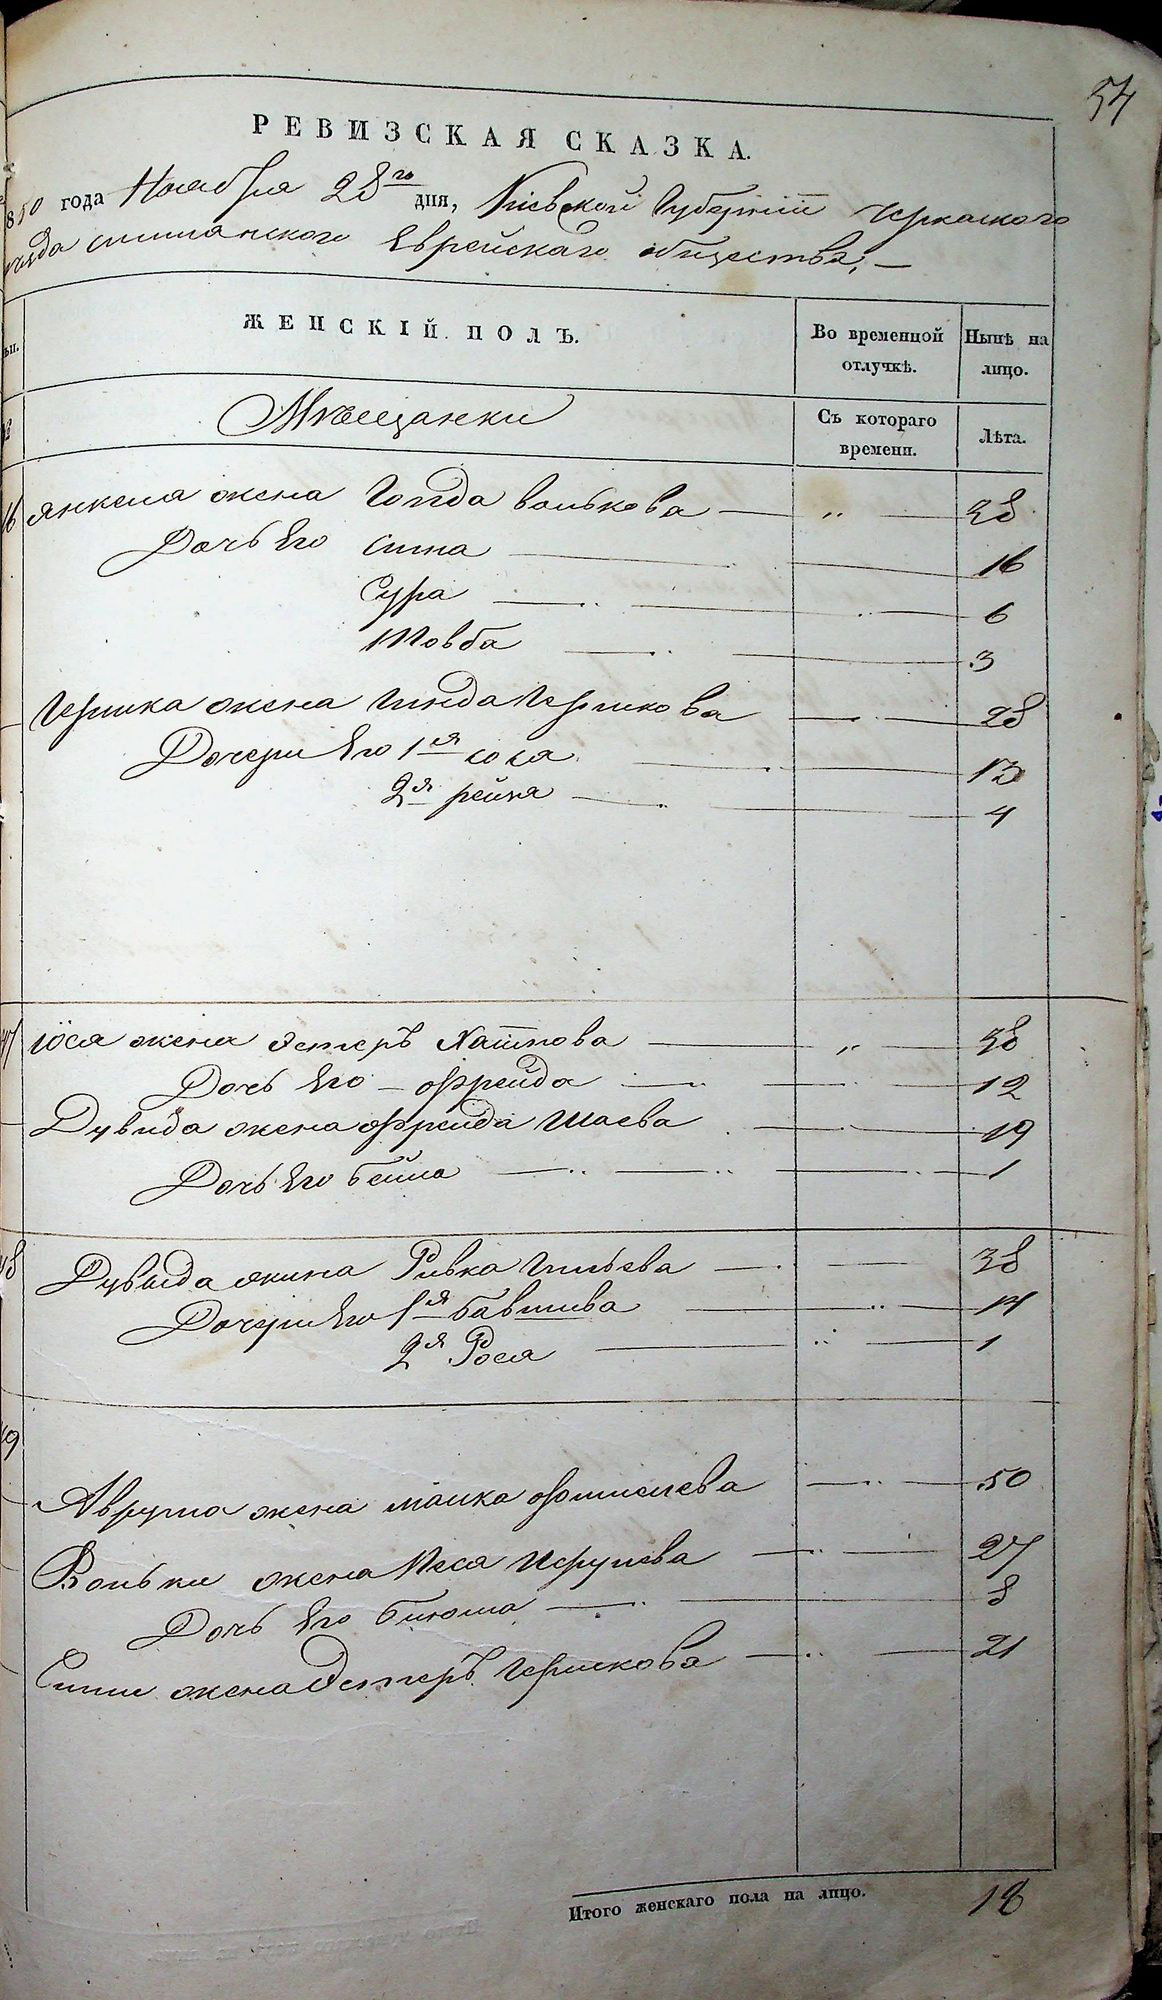 54
РЕВИЗСКАЯ СКАЗКА.
850 года Ноября 28го дня, Кіевской Губерніи Черкаского
уезда смилянского Еврейскаго общества,
ЖЕНСКІЙ ПОЛЪ.
Во временной отлучкѣ.
Нынѣ на лицо.
Мѣщанки
Съ котораго времени.
Лѣта.
16 Янкеля жена Гольда Волькова — „ — 38
Дочь Его Сима 16
Сура 6
Товба 3
Гершка жена Гинда Гершкова 28
Дочери Его 1я Сося 13
2я рейза 4
47 Іося жена Эстеръ Хаимова „ 38
Дочь Его — Фрейда 12
Дувида жена Фрейда Шаева 19
Дочь Его бейла 1
48 Дувыда жина Ривка Гильева 38
Дочери Его 1я бавшива 14
2я Рося 1
49
Аврума жена малка Фишелева 50
Вольки жена Песя Исрулева 27
Дочь Его блюма 8
жена Эстеръ Гершкова 21
Итого женскаго пола на лицо. 18